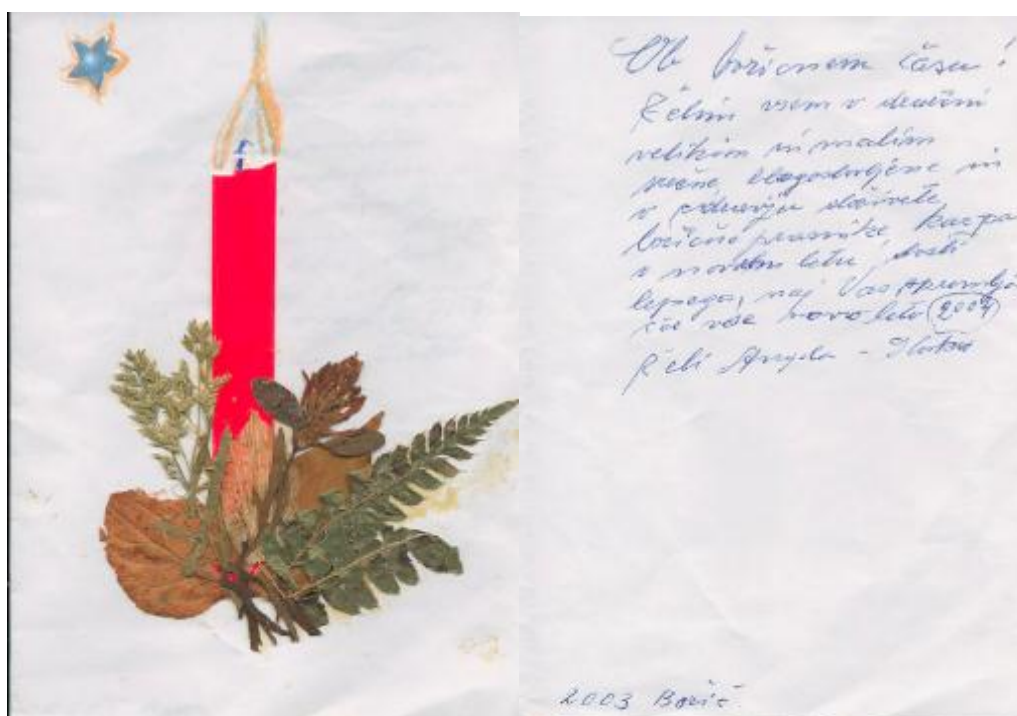 Ob božičnem času!
Želim vsem v
velikim in malim
blagoslovljene in
v zdravju doživete
božične praznike kar pa
v novem letu, dosti
lepega, naj Vas spremlja
vse novo leto 2004
želi Angela -
2003 Božič